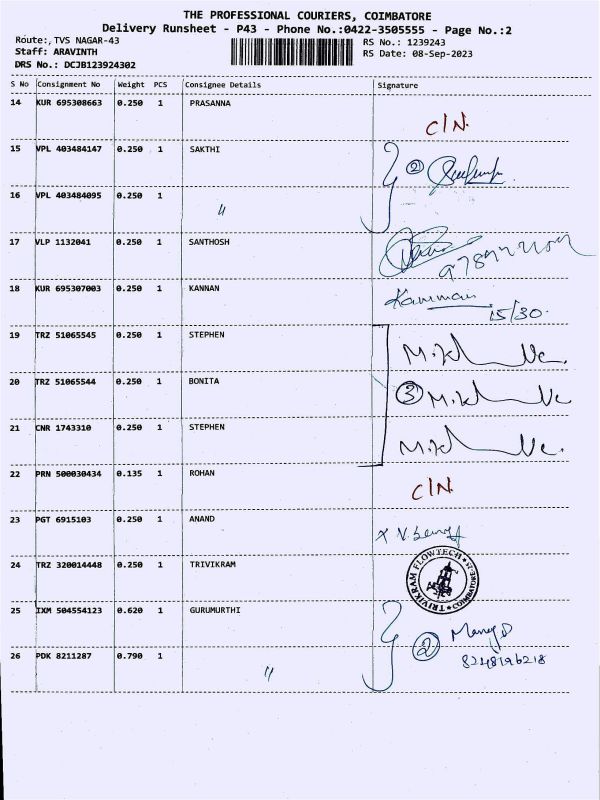 THE PROFESSIONAL COURIERS, COIMBATORE
Delivery Runsheet - P43 - Phone No.:0422-3505555 - Page No.:2
Route:, TVS NAGAR-43 RS No.: 1239243
Staff: ARAVINTH RS Date: 08-Sep-2023
DRS No.: DCJB123924302
S No Consignment No Weight PCS Consignee Details Signature
14 KUR 695308663 0.250 1 PRASANNA C/N.
15 VPL 403484147 0.250 1 SAKTHI 2
16 VPL 403484095 0.250 1 〃
17 VLP 1132041 0.250 1 SANTHOSH
18 KUR 695307003 0.250 1 KANNAN Kannan
15/30.
19 TRZ 51065545 0.250 1 STEPHEN
20 TRZ 51065544 0.250 1 BONITA 3
21 CNR 1743310 0.250 1 STEPHEN
22 PRN 500030434 0.135 1 ROHAN C/N.
23 PGT 6915103 0.250 1 ANAND
24 TRZ 320014448 0.250 1 TRIVIKRAM TRIVIKRAM FLOWTECH
25 IXM 504554123 0.620 1 GURUMURTHI 2
26 PDK 8211287 0.790 1 〃